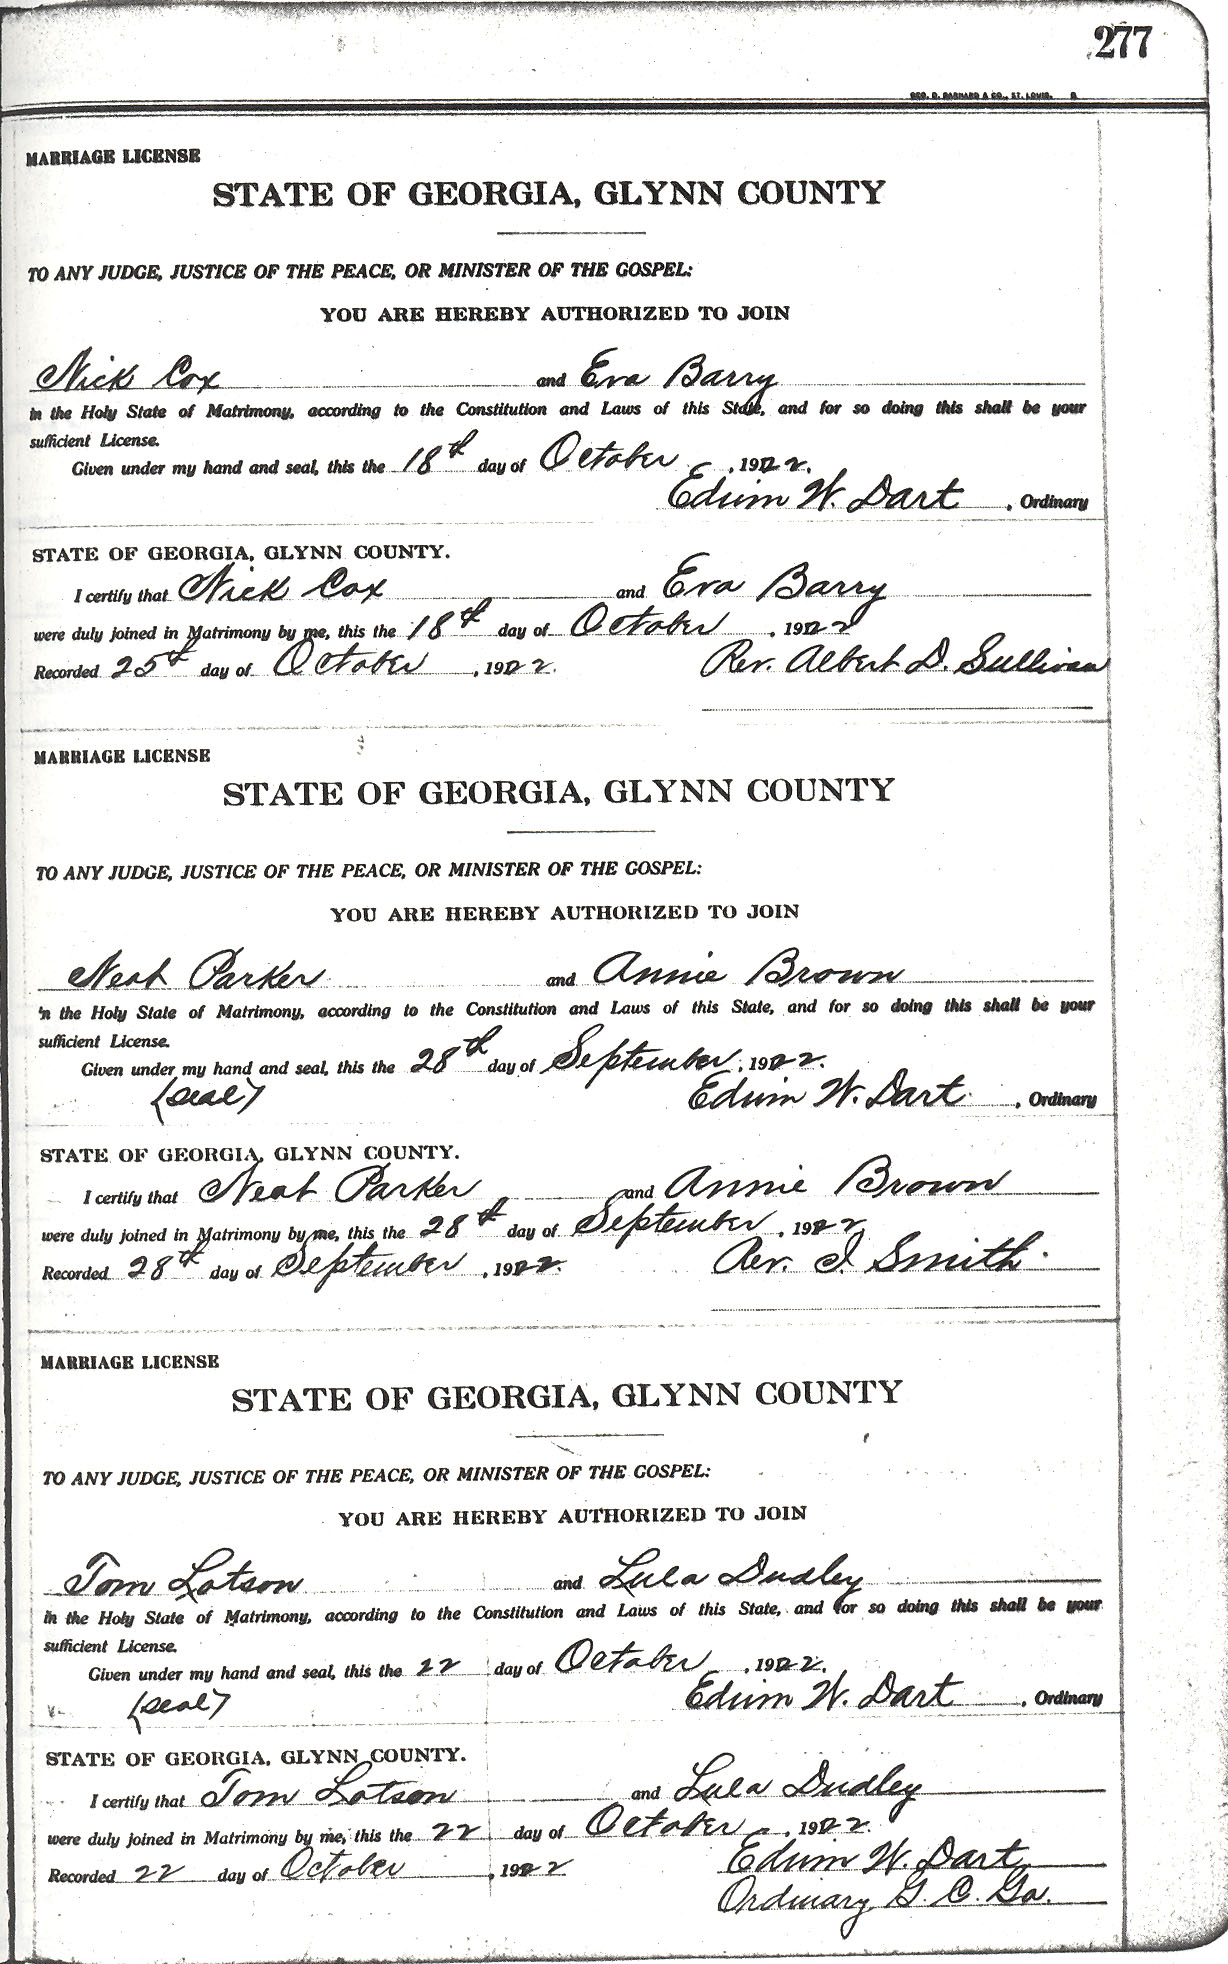 277
GEO. D. BARNARD & CO., ST. LOUIS.
MARRIAGE LICENSE
STATE OF GEORGIA, GLYNN COUNTY
TO ANY JUDGE, JUSTICE OF THE PEACE, OR MINISTER OF THE GOSPEL:
YOU ARE HEREBY AUTHORIZED TO JOIN
Nick Cox and Eva Barry
in the Holy State of Matrimony, according to the Constitution and Laws of this State, and for so doing this shall be your
sufficient License.
Given under my hand and seal, this the 18th day of October, 1922.
Edwin W. Dart, Ordinary
STATE OF GEORGIA, GLYNN COUNTY.
I certify that Nick Cox and Eva Barry
were duly joined in Matrimony by me, this the 18th day of October, 1922
Recorded 25th day of October, 1922. Rev. Albert D. Sullivan
MARRIAGE LICENSE
STATE OF GEORGIA, GLYNN COUNTY
TO ANY JUDGE, JUSTICE OF THE PEACE, OR MINISTER OF THE GOSPEL:
YOU ARE HEREBY AUTHORIZED TO JOIN
Neat Parker and Annie Brown
in the Holy State of Matrimony, according to the Constitution and Laws of this State, and for so doing this shall be your
sufficient License.
Given under my hand and seal, this the 28th day of September, 1922.
(seal) Edwin W. Dart, Ordinary
STATE OF GEORGIA, GLYNN COUNTY.
I certify that Neat Parker and Annie Brown
were duly joined in Matrimony by me, this the 28th day of September, 1922
Recorded 28th day of September, 1922. Rev. I. Smith.
MARRIAGE LICENSE
STATE OF GEORGIA, GLYNN COUNTY
TO ANY JUDGE, JUSTICE OF THE PEACE, OR MINISTER OF THE GOSPEL:
YOU ARE HEREBY AUTHORIZED TO JOIN
Tom Lotson and Lula Dudley
in the Holy State of Matrimony, according to the Constitution and Laws of this State, and for so doing this shall be your
sufficient License.
Given under my hand and seal, this the 22 day of October, 1922.
(seal) Edwin W. Dart, Ordinary
STATE OF GEORGIA, GLYNN COUNTY.
I certify that Tom Lotson and Lula Dudley
were duly joined in Matrimony by me, this the 22 day of October, 1922.
Recorded 22 day of October, 1922 Edwin W. Dart
Ordinary G. C. Ga.